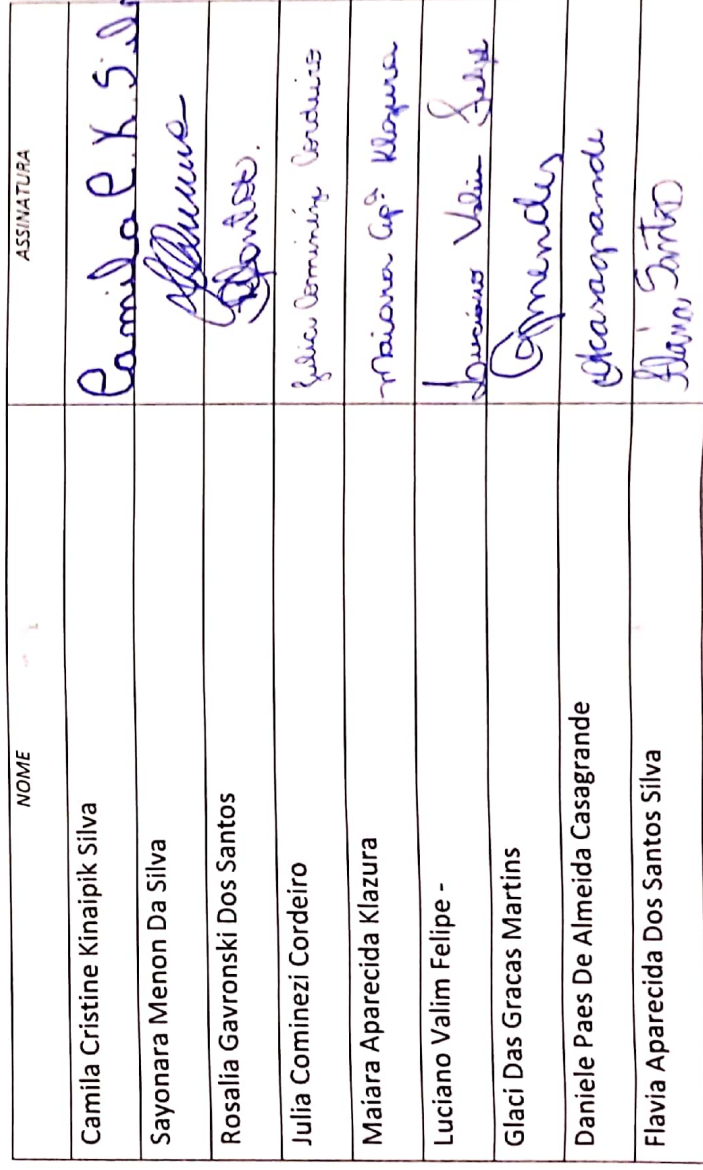 NOME ASSINATURA
Camila Cristine Kinaipik Silva Camila C. K. Silv
Sayonara Menon Da Silva
Rosalia Gavronski Dos Santos
Julia Cominezi Cordeiro Julia Cominezi Cordeiro
Maiara Aparecida Klazura Maiara Apª Klazura
Luciano Valim Felipe - Luciano Valim Felipe
Glaci Das Gracas Martins
Daniele Paes De Almeida Casagrande
Flavia Aparecida Dos Santos Silva Flávia